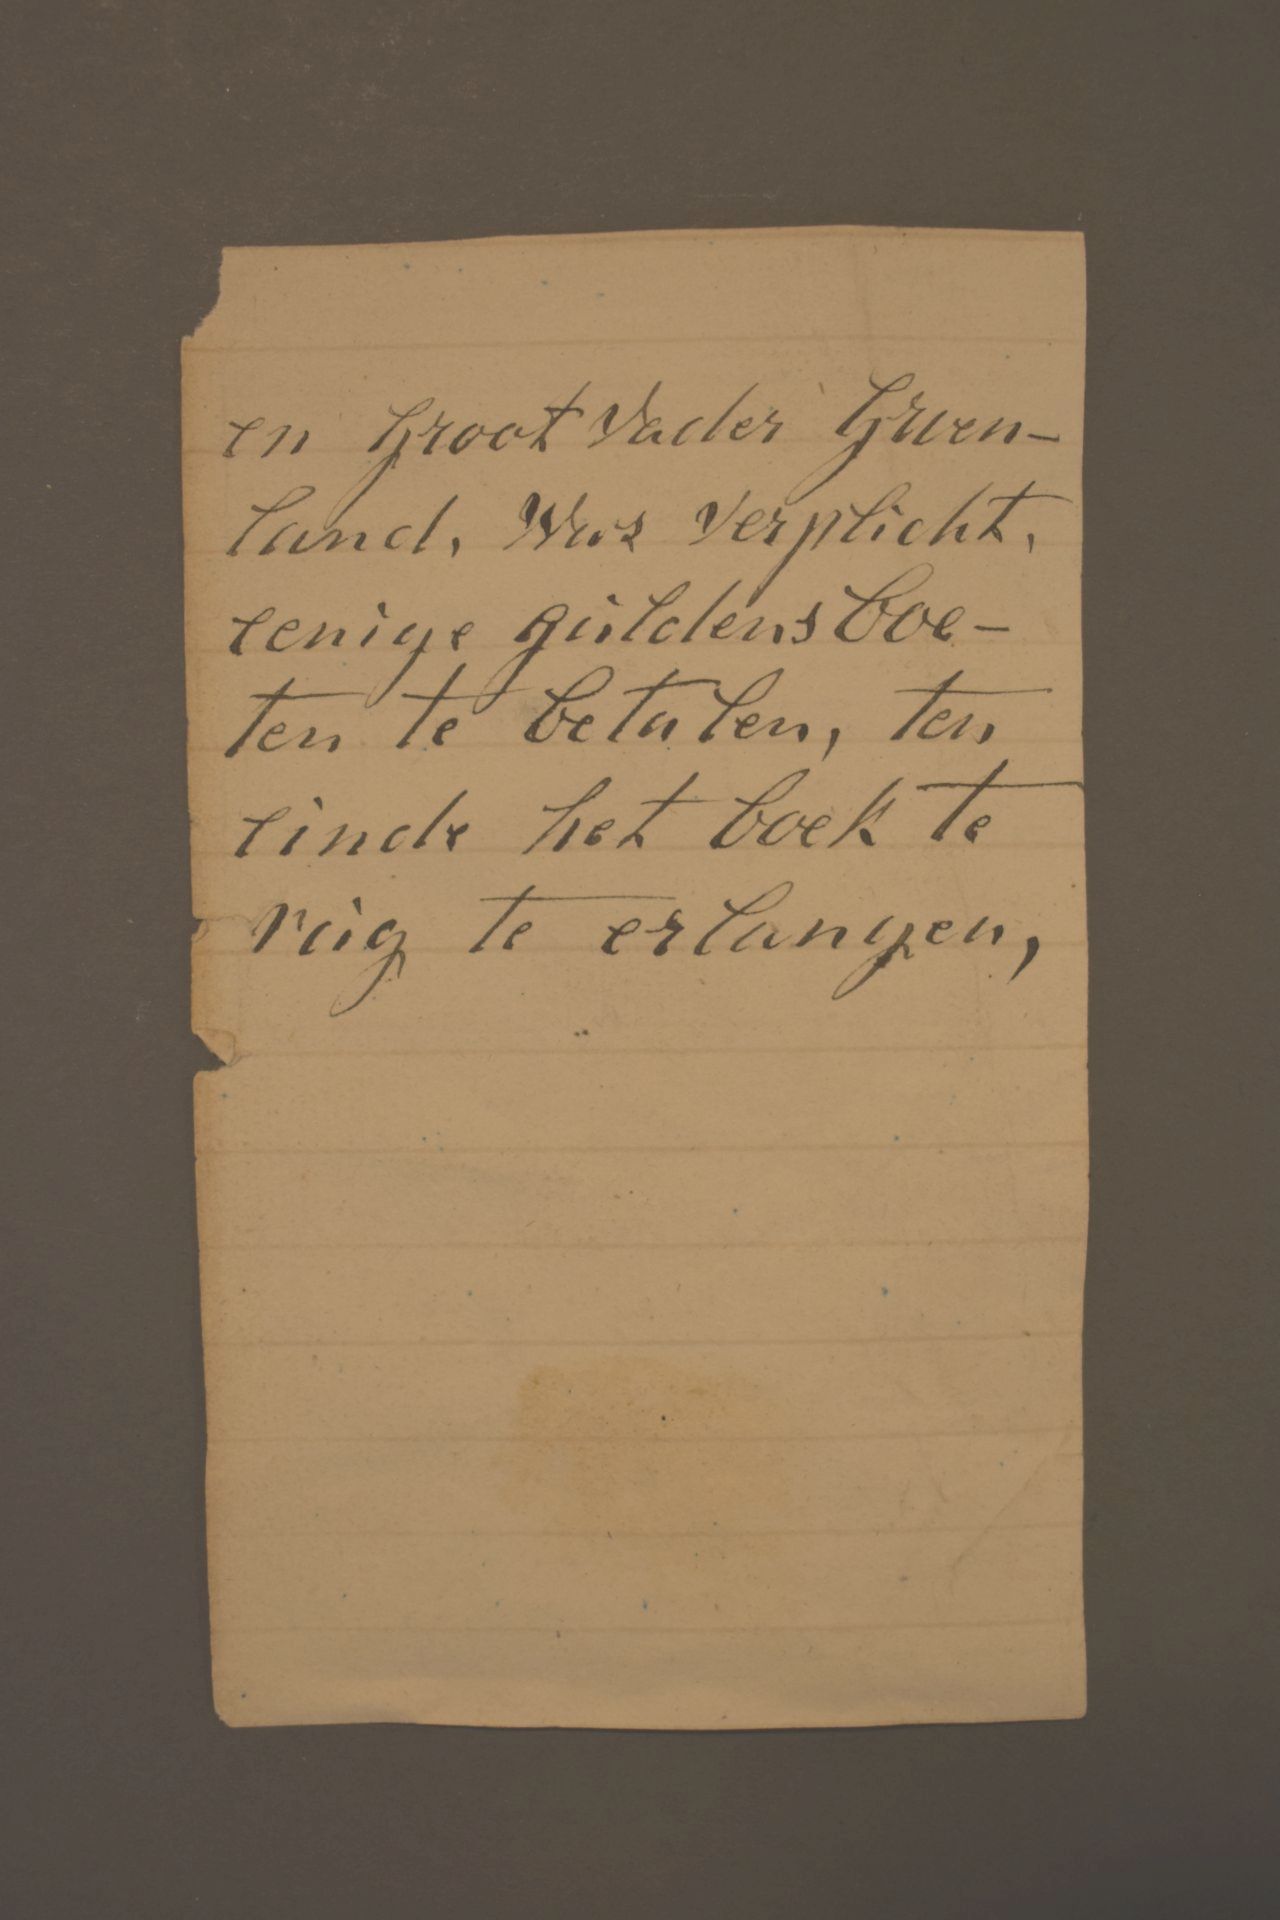 en Groot Vader Groen-
land, Was Verplicht,
eenige guldens boe-
ten te betalen, ten
einde het boek te
rúg te erlangen,